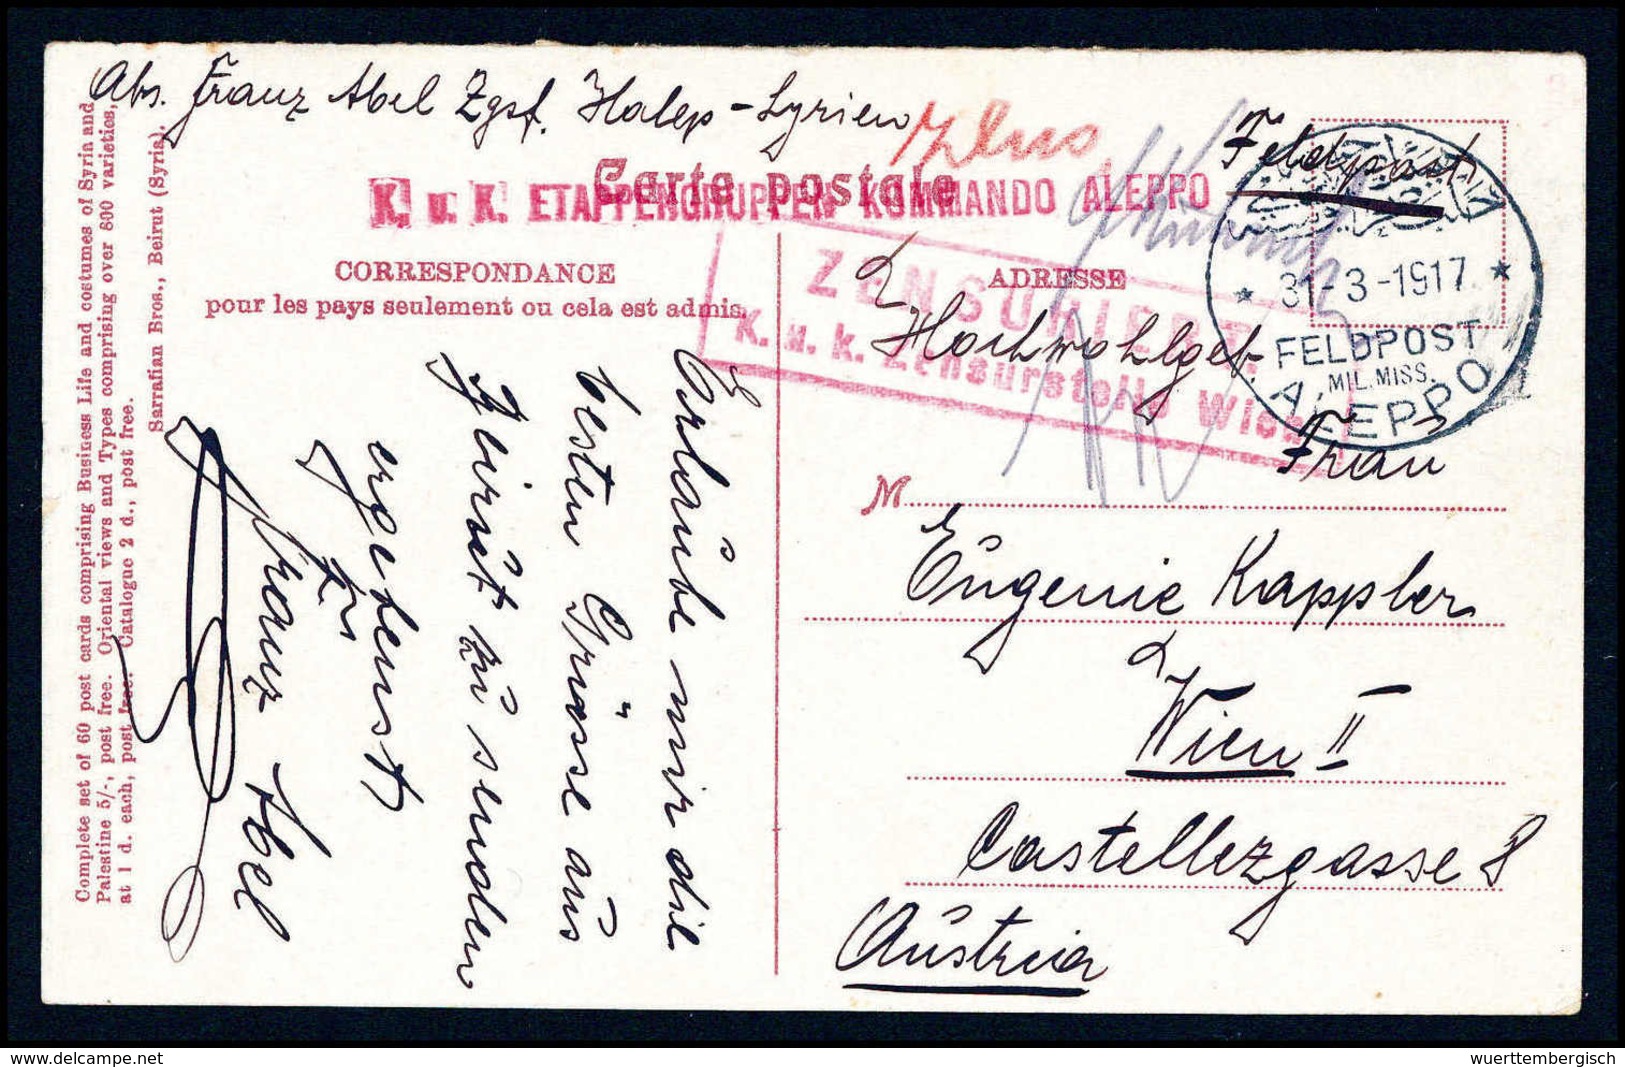 Abs. Franz Abel Zgsf. Halep - Syrien
Feldpost
Carte postale
K. u. K. ETAPPENGRUPPEN KOMMANDO ALEPPO
CORRESPONDANCE
pour les pays seulement ou cela est admis.
ADRESSE
ZENSURIERT.
K. u. k. Zensurstelle Wien
31-3-1917
FELDPOST
MIL. MISS.
ALEPPO
Hochwohlgeb.
Frau
M
Eugenie Kappler
Wien II
Castellezgasse 8
Austria
Erlaube mir die
besten Grüsse aus
Beirut zu senden
ergebenst
Franz Abel
Complete set of 60 post cards comprising Business Life and costumes of Syria and
Palestine 5/-, post free. Oriental views and Types comprising over 800 varieties,
at 1 d. each, post free. Catalogue 2 d., post free.
Sarrafian Bros., Beirut (Syria).
wuerttembergisch
www.delcampe.net